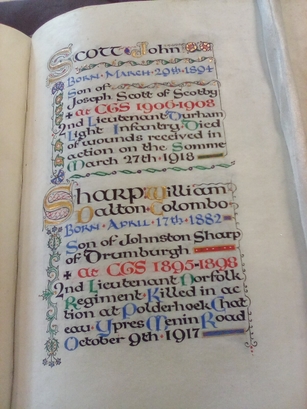 Scott John
Born March 29th 1894
Son of
Joseph Scott of Scotby
+ at CGS 1906-1908
2nd Lieutenant Durham
Light Infantry Died
of wounds received in
action on the Somme
March 27th 1918
Sharp William
Dalton Colombo
Born April 17th 1882
Son of Johnston Sharp
of Drumburgh
+ at CGS 1895-1898
2nd Lieutenant Norfolk
Regiment Killed in ac
tion at Polderhoek Chat
eau Ypres Menin Road
October 9th 1917